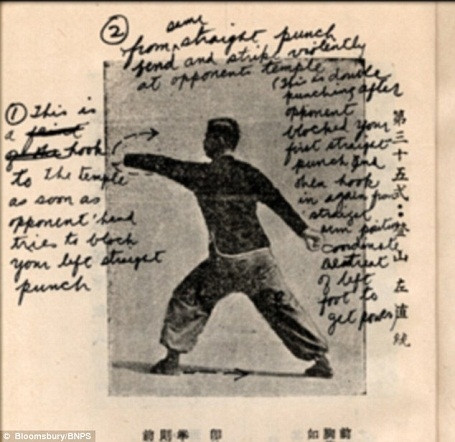 ②
same
from straight punch
bend and strike violently
at opponents temple
(This is double
punching after
opponent
blocked your
first straight
punch and
then hook
in again from
straight
arm position
coordinate
of left
foot to
get power)
① This is
a
hook
to The temple
as soon as
opponent' head
tries to block
your left straight
punch
第三十五式：登山左直統
前則拳 印 如胸前
© Bloomsbury/BNPS